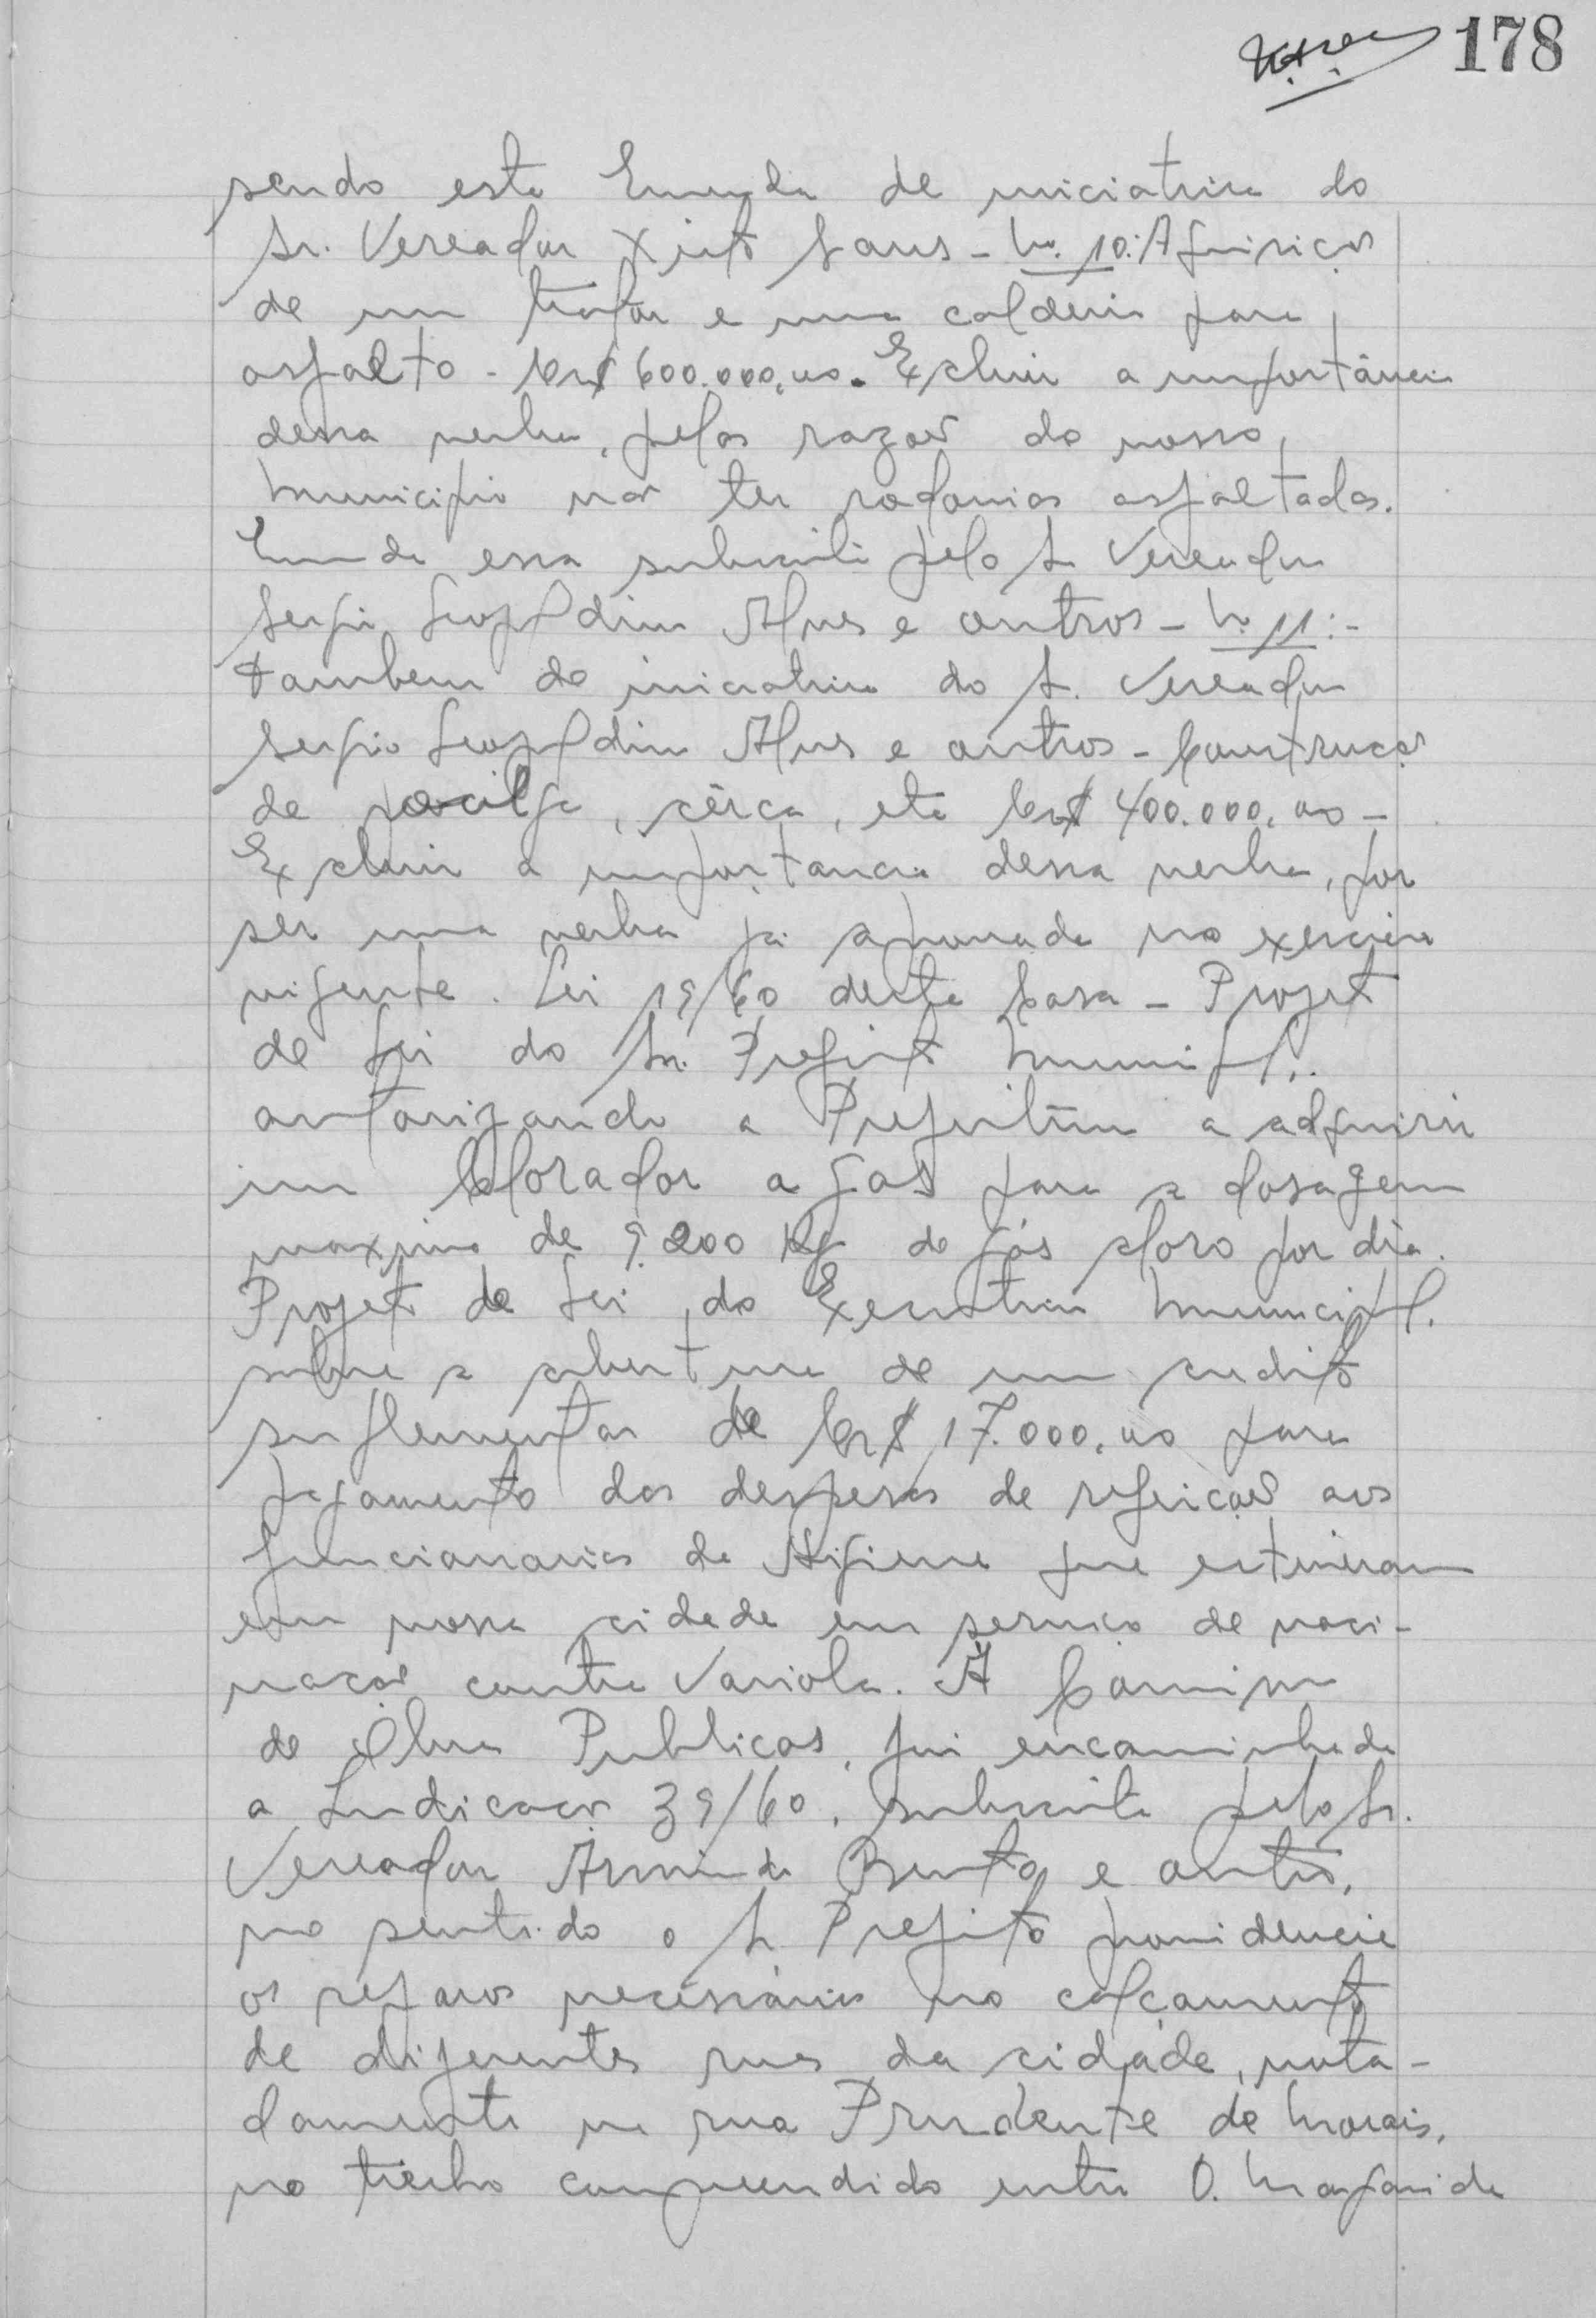 178
sendo esta Emenda de iniciativa do
Sr. Vereador Xisto - No. 10: Aquisição
de um trator e uma caldeira para
asfalto - Cr$ 600.000,00. Excluir a importância
dessa verba, pelas razões do nosso
Municipio não ter rodovias asfaltadas.
Emenda essa subscrita pelo Sr Vereador
Sergio Leopoldino Alves e outros - No 11:-
tambem de iniciativa do Sr. Vereador
Sergio Leopoldino Alves e outros - Construção
de pocilga, cêrca, etc Cr$ 400.000,00 -
Excluir a importancia dessa verba, por
ser uma verba já aprovada no exercicio
vigente. Lei 19/60 desta Casa - Projeto
de Lei do Sr. Prefeito Municipal.
autorizando a Prefeitura a adquirir
um Clorador a gás para a dosagem
maxima de 9.200 Kg de gás cloro por dia.
Projeto de Lei do Executivo Municipal.
sobre a abertura de um credito
suplementar de Cr$ 17.000,00 para
pagamento das despesas de refeições aos
funcionarios de Higiene que estiveram
em nossa cidade em serviço de vaci-
nação contra Variola. À Comissão
de Obras Publicas, foi encaminhada
a Indicação 39/60, subscrita pelo Sr.
Vereador Armindo Bento e outros,
no sentido o Sr. Prefeito providencie
os reparos necessários no calçamento
de diferentes ruas da cidade, nota-
damente na rua Prudente de Morais,
no trecho compreendido entre D. Margarida